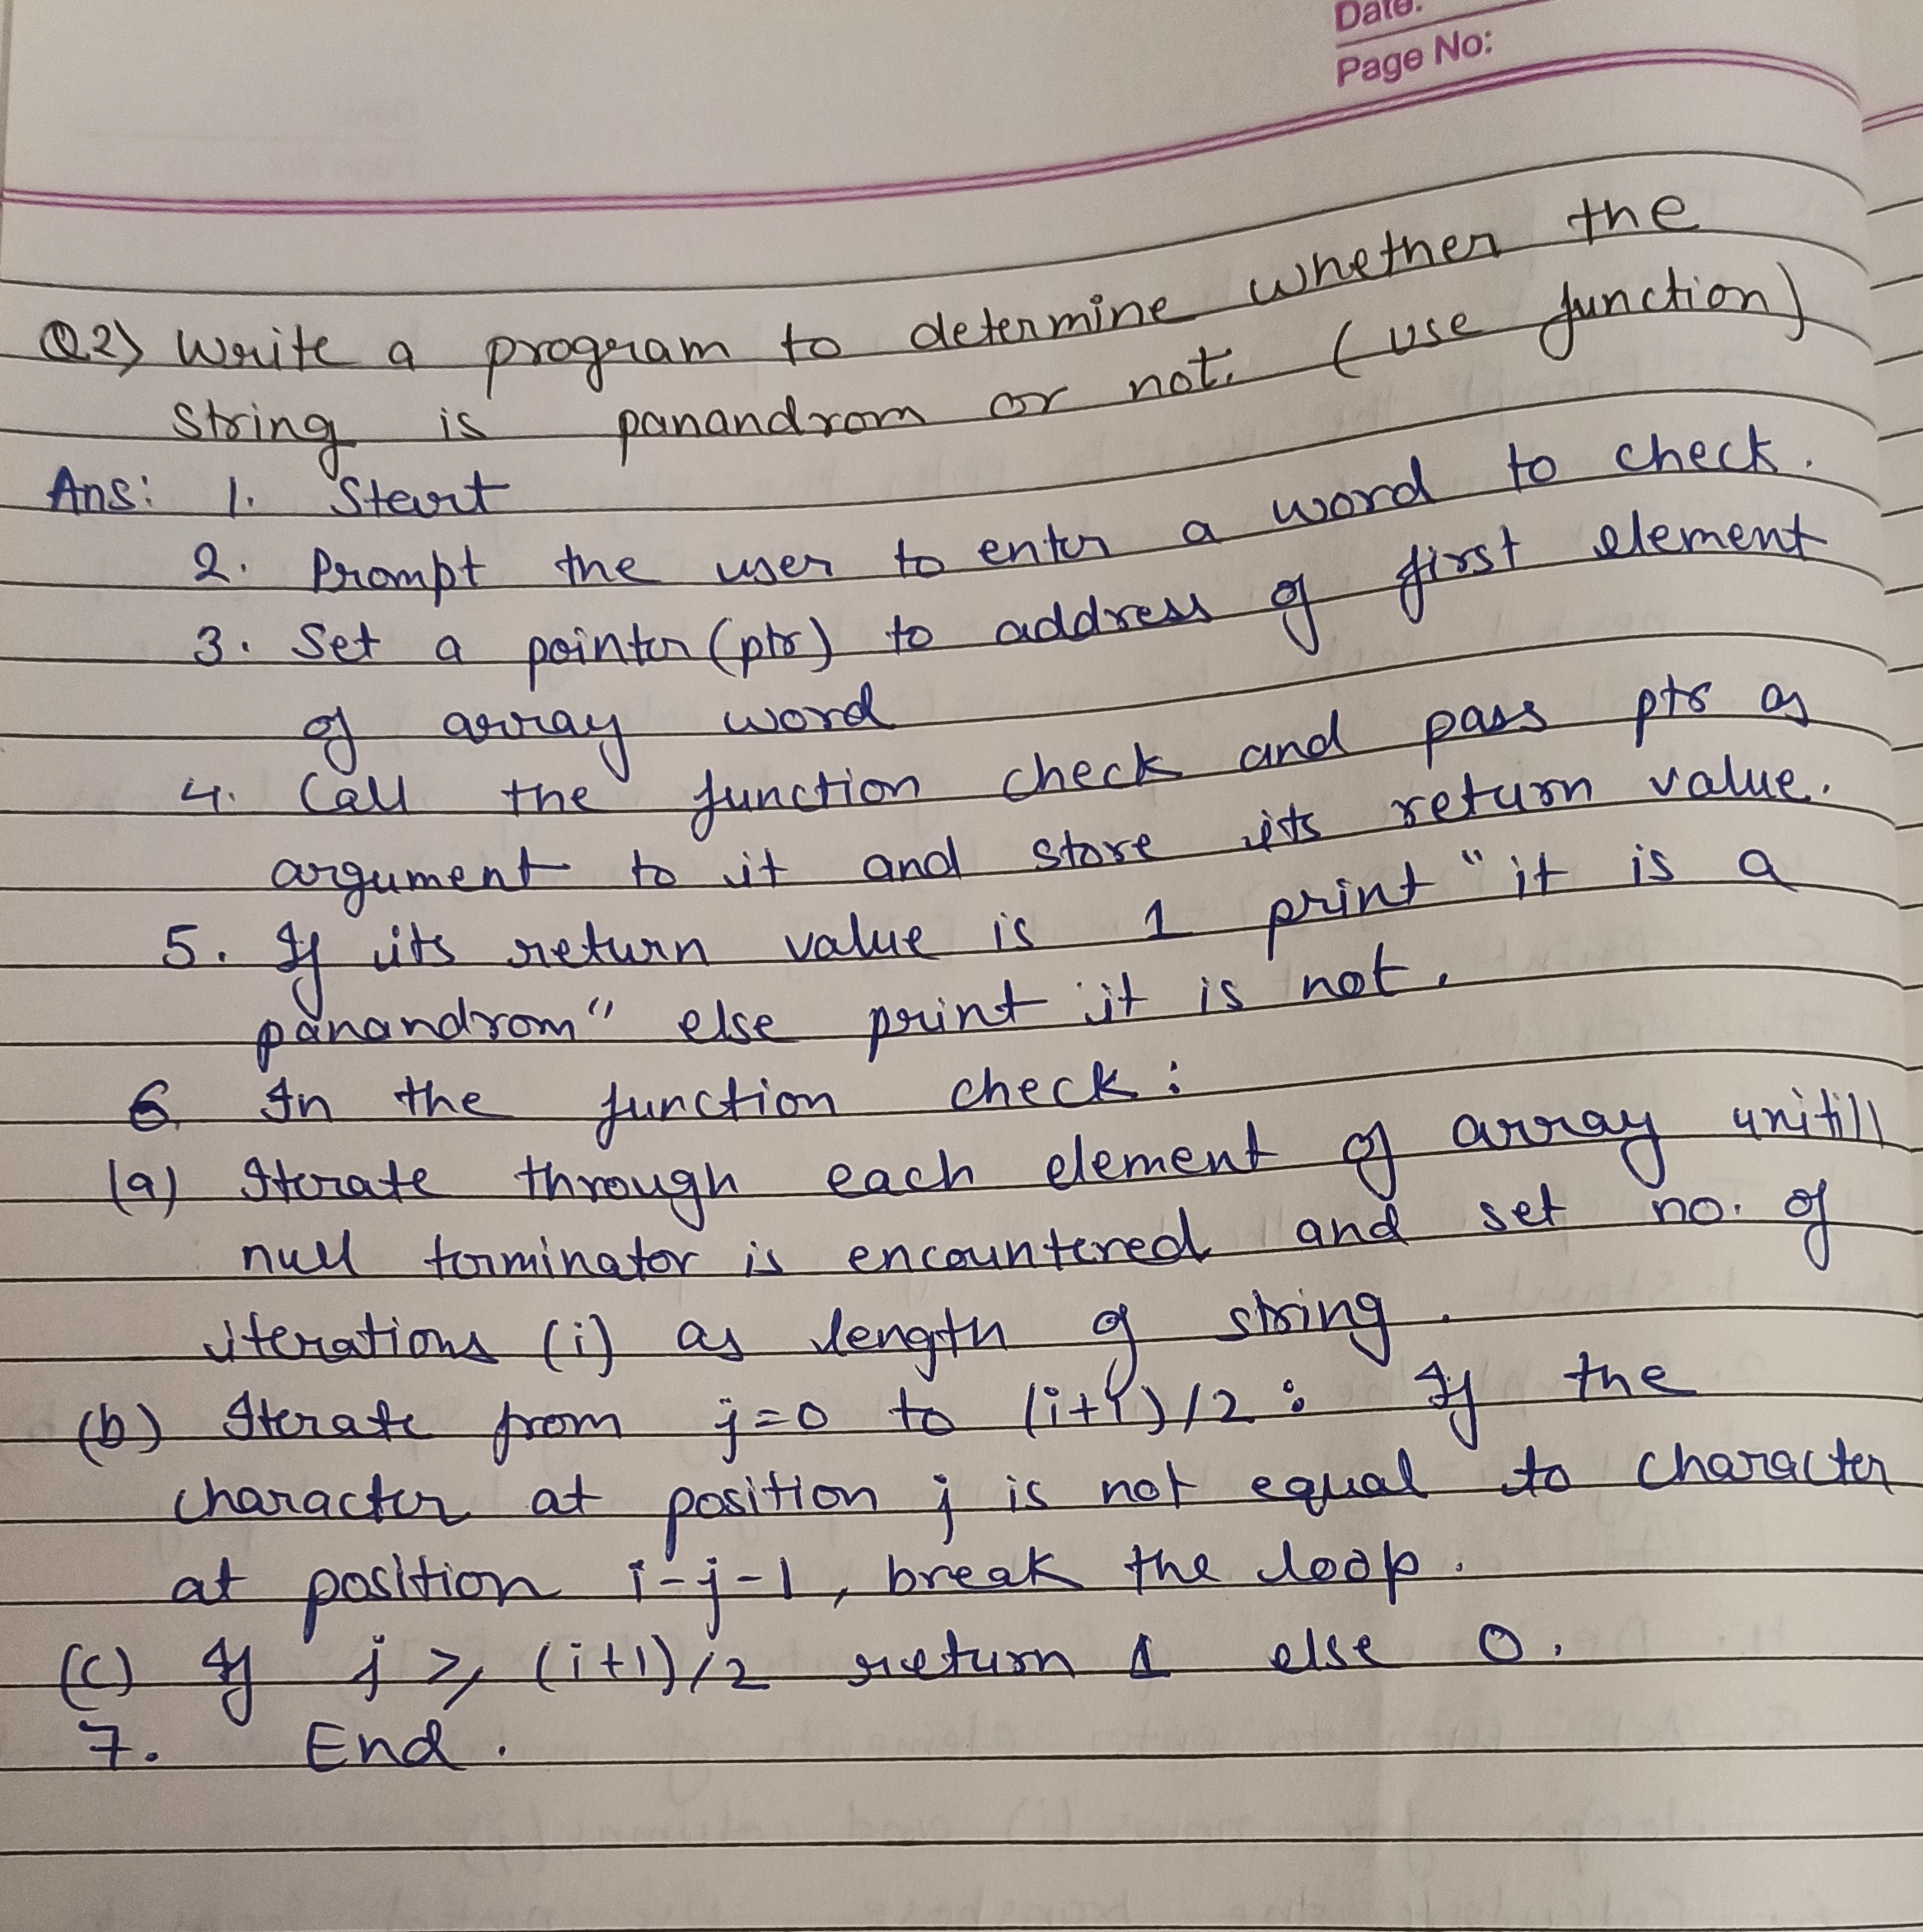 Date.
Page No:
Q.2) Write a program to determine whether the
string is panandrom or not. (use function)
Ans: 1. Start
2. Prompt the user to enter a word to check.
3. Set a pointer (ptr) to address of first element
of array word
4. Call the function check and pass ptr as
argument to it and store its return value.
5. If its return value is 1 print "it is a
panandrom" else print it is not.
6. In the function check :
(a) Iterate through each element of array unitill
null terminator is encountered and set no. of
iterations (i) as length of string.
(b) Iterate from j=0 to (i+1)/2 : If the
character at position j is not equal to character
at position i-j-1, break the loop.
(c) If j ≥ (i+1)/2 return 1 else 0.
7. End.